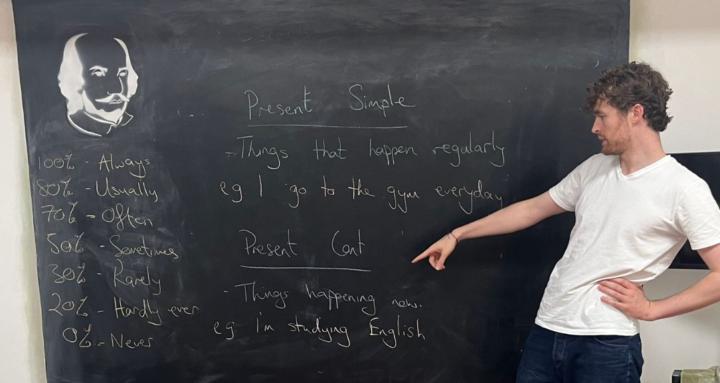 100% - Always
80% - Usually
70% - Often
50% - Sometimes
30% - Rarely
20% - Hardly ever
0% - Never
Present Simple
- Things that happen regularly
eg I go to the gym everyday
Present Cont
- Things happening now.
eg I'm studying English